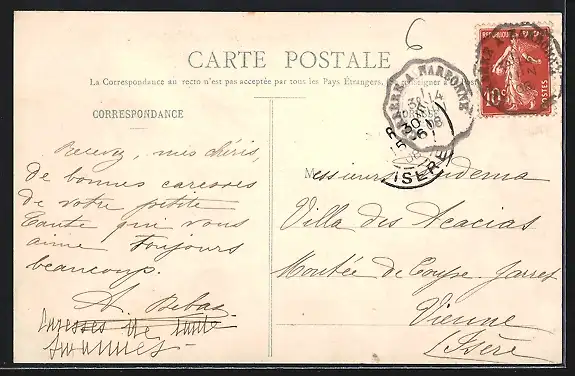 6
CARTE POSTALE
La Correspondance au recto n'est pas acceptée par tous les Pays Étrangers. Se renseigner à la Poste
CORRESPONDANCE
REPUBLIQUE FRANÇAISE
10c
POSTES
A NARBONNE
ISERE
Recevez, mes chéris,
de bonnes caresses
de votre petite
tante qui vous
aime toujours
beaucoup.
A.
Caresses de tante
Messieurs
Villa des Acacias
Montée de Coupe-Jarret
Vienne
Isère